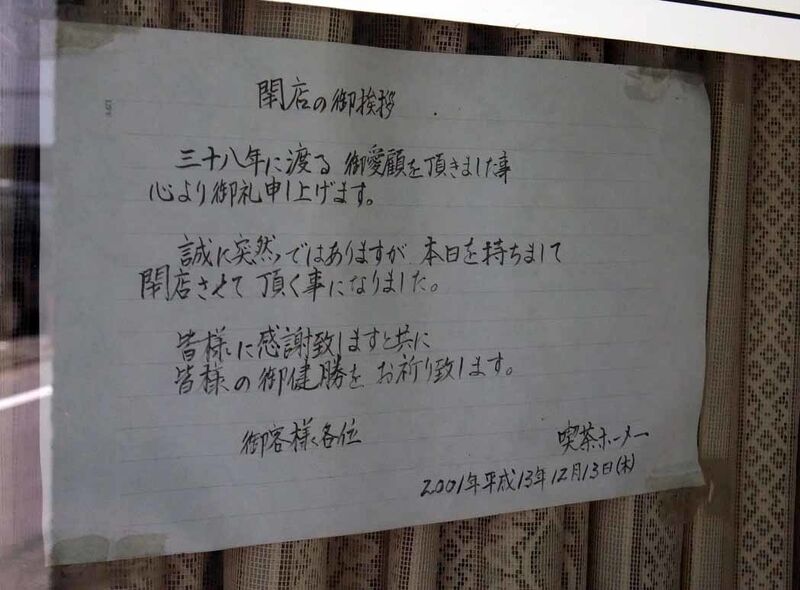 閉店の御挨拶
三十八年に渡る 御愛顧を頂きました事
心より御礼申し上げます。
誠に突然ではありますが 本日を持ちまして
閉店させて 頂く事になりました。
皆様に感謝致しますと共に
皆様の御健勝を お祈り致します。
御客様各位
喫茶ホーマー
2001年平成13年12月13日(木)